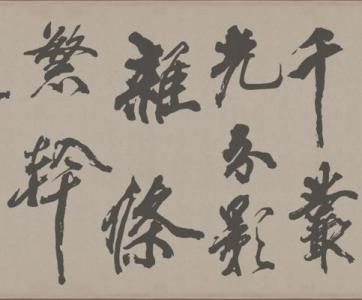 千叢
光分影
離條
繁幹